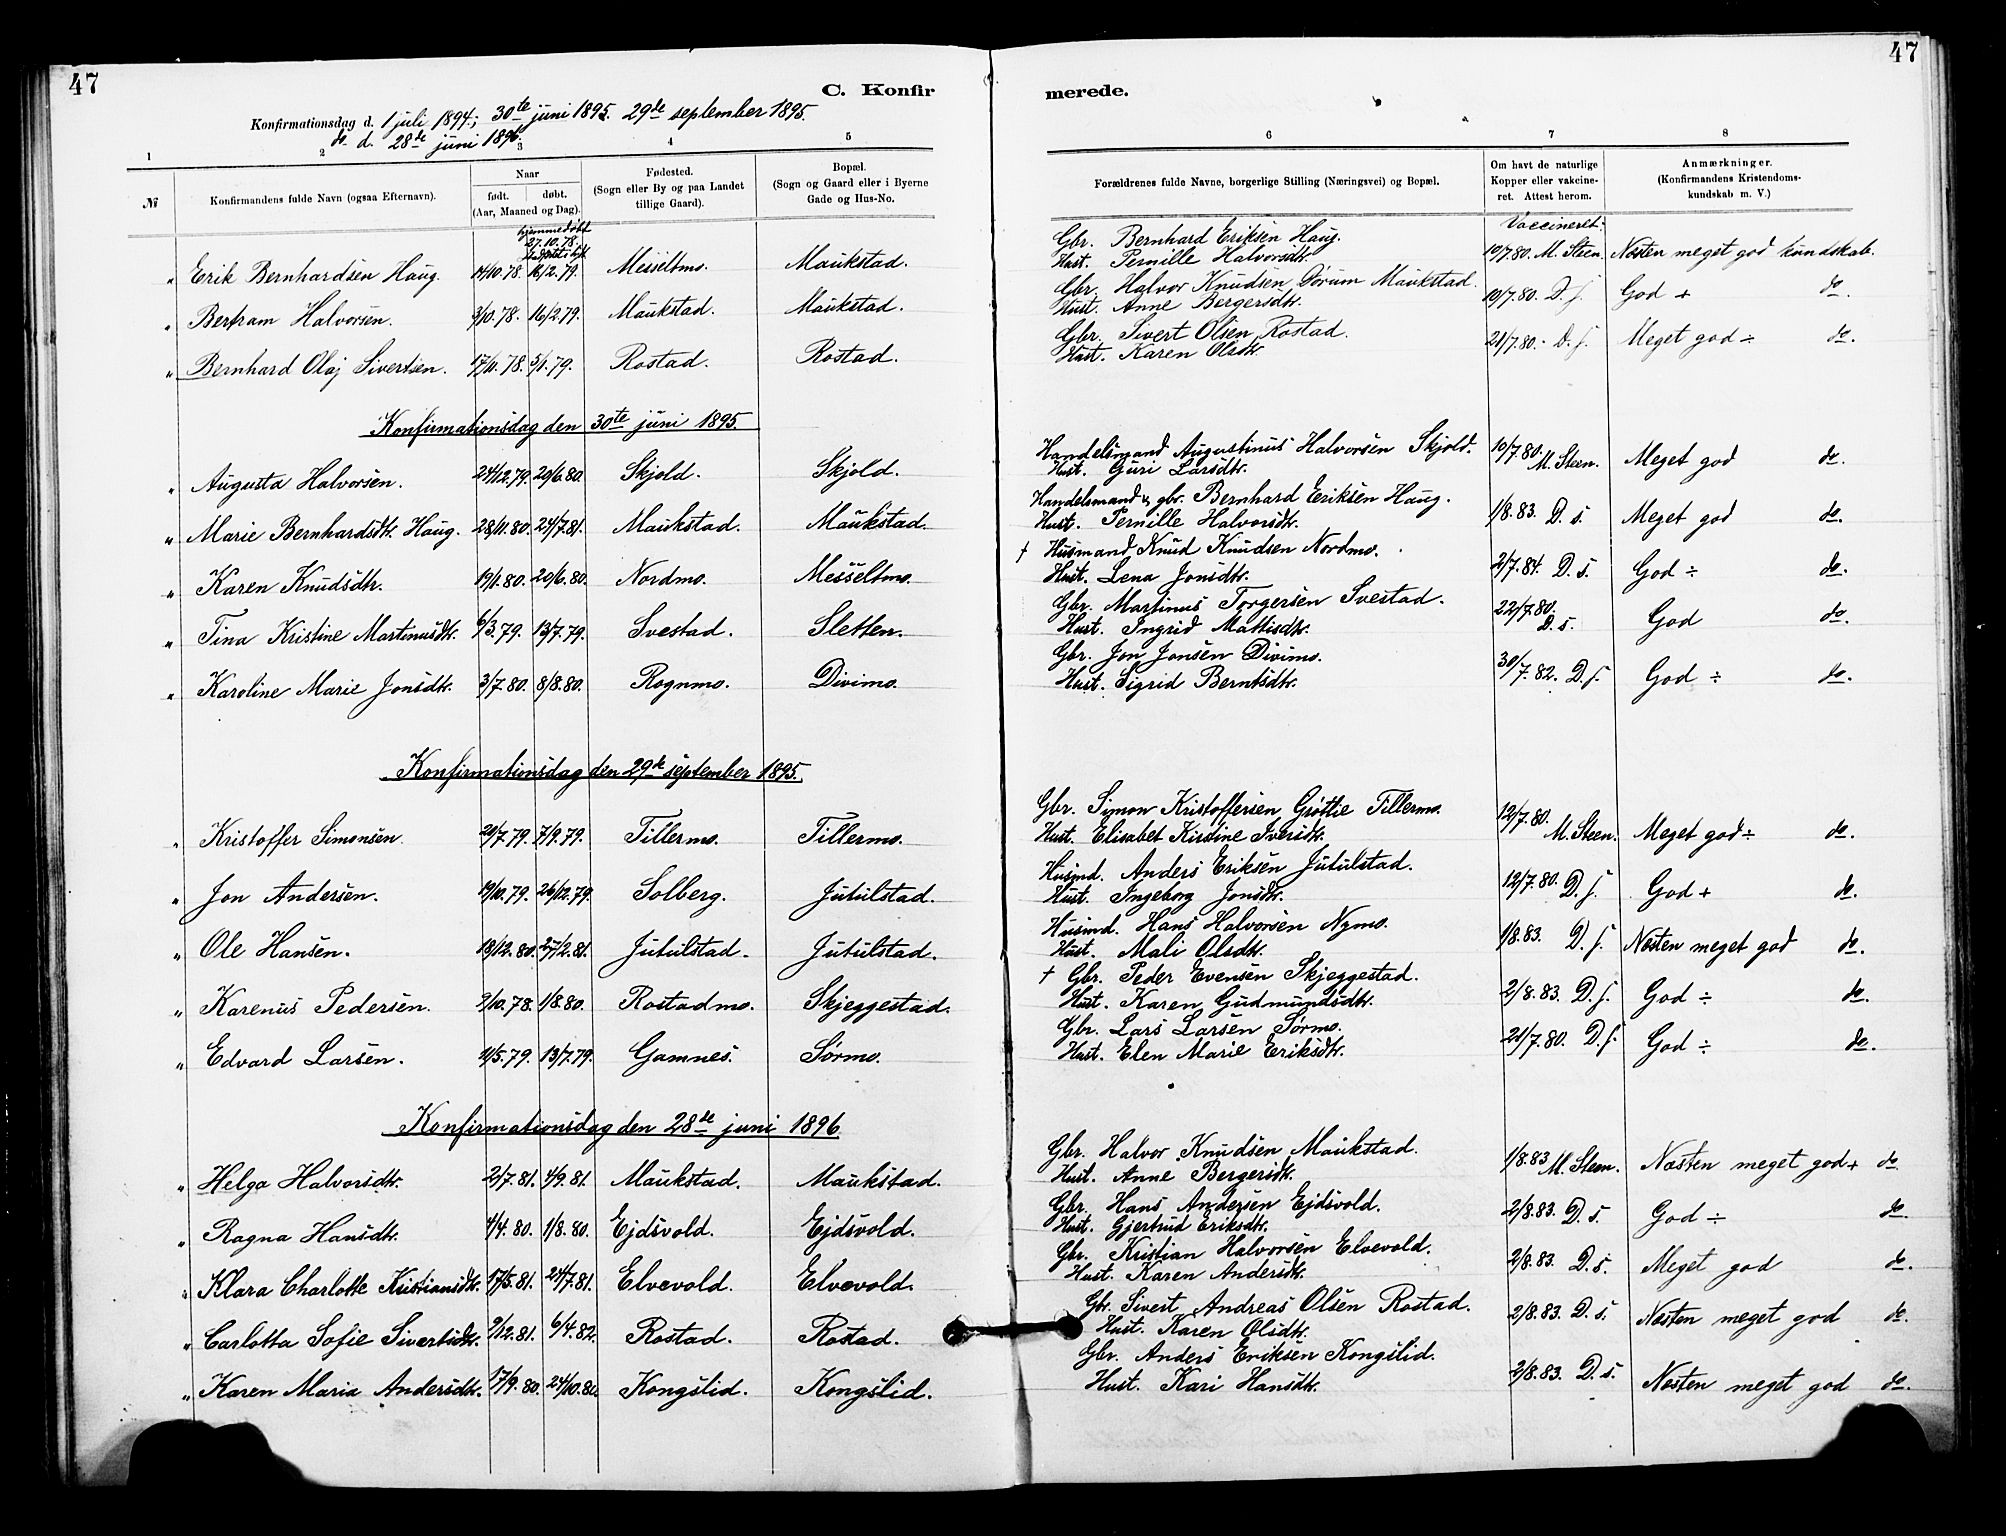 47
47
C. Konfir
merede.
Konfirmationsdag d. 1 juli 1894; 30te juni 1895. 29de september 1895.
do d. 28de juni 1896.
1 2 3 4 5 6 7 8
№
Konfirmandens fulde Navn (ogsaa Efternavn).
Naar
født. døbt.
(Aar, Maaned og Dag).
Fødested.
(Sogn eller By og paa Landet
tillige Gaard).
Bopæl.
(Sogn og Gaard eller i Byerne
Gade og Hus-No.
Forældrenes fulde Navne, borgerlige Stilling (Næringsvei) og Bopæl.
Om havt de naturlige
Kopper eller vakcine-
ret. Attest herom.
Anmærkninger.
(Konfirmandens Kristendoms-
kundskab m. V.)
hjemmedøbt
27.10.78.
Vaccineret:
Gbr. Bernhard Eriksen Haug.
" Erik Bernhardsen Haug. 14/10.78. 16/2.79. Messeltmo. Maukstad. Hust. Pernille Halvorsdtr. 19/7.80. M. Steen. Næsten meget god kundskab.
Gbr. Halvor Knudsen Sørum Maukstad.
" Bertram Halvorsen. 3/10.78. 16/2.79. Maukstad. Maukstad. Hust. Anne Bergersdtr. 19/7.80. D. s. God + do.
Gbr. Sivert Olsen Rostad.
" Bernhard Olaj Sivertsen. 17/11.78. 5/1.79. Rostad. Rostad. Hust. Karen Olsdtr. 21/7.80. D. s. Meget god ÷ do.
Konfirmationsdag den 30te juni 1895.
Handelsmand Augustinus Halvorsen Skjold.
" Augusta Halvorsen. 24/12.79. 20/6.80. Skjold. Skjold. Hust. Guri Larsdtr. 10/7.80. M. Steen. Meget god do.
Handelsmand & gbr. Bernhard Eriksen Haug.
" Marie Bernhardsdtr. Haug. 28/11.80. 24/7.81. Maukstad. Maukstad. Hust. Pernille Halvorsdtr. 1/8.83. D. s. Meget god do.
† Husmand Knud Knudsen Nordmo.
" Karen Knudsdtr. 19/1.80. 20/6.80. Nordmo. Messeltmo. Hust. Lena Jonsdtr. 2/7.84. D. s. God ÷ do.
Gbr. Martinus Torgersen Svestad.
" Tina Kristine Martinusdtr. 6/3.79. 13/7.79. Svestad. Sletten. Hust. Ingrid Mattisdtr. 22/7.80. D. s. God do.
Gbr. Jon Jonsen Divimo.
" Karoline Marie Jonsdtr. 3/7.80. 8/8.80. Rognmo. Divimo. Hust. Sigrid Berntsdtr. 30/7.82. D. s. God ÷ do.
Konfirmationsdag den 29de september 1895.
Gbr. Simon Kristoffersen Grøttie Tillermo.
" Kristoffer Simonsen. 20/7.79. 7/9.79. Tillermo. Tillermo. Hust. Elisabet Kirstine Iversdtr. 12/7.80. M. Steen. Meget god ÷ do.
Husmd. Anders Eriksen Jutulstad.
" Jon Andersen. 19/10.79. 26/12.79. Solberg. Jutulstad. Hust. Ingeborg Jonsdtr. 12/7.80. D. s. God + do.
Husmd. Hans Halvorsen Nymo.
" Ole Hansen. 18/12.80. 27/2.81. Jutulstad. Jutulstad. Hust. Mali Olsdtr. 1/8.83. D. s. Næsten meget god do.
† Gbr. Peder Evensen Skjeggestad.
" Karenus Pedersen. 2/10.78. 1/8.80. Rostadmo. Skjeggestad. Hust. Karen Gudmundsdtr. 2/8.83. D. s. God ÷ do.
Gbr. Lars Larsen Sørmo.
" Edvard Larsen. 2/5.79. 13/7.79. Gamnes. Sørmo. Hust. Elen Marie Eriksdtr. 21/7.80. D. s. God ÷ do.
Konfirmationsdag den 28de juni 1896
Gbr. Halvor Knudsen Maukstad.
" Helga Halvorsdtr. 2/7.81. 4/9.81. Maukstad. Maukstad. Hust. Anne Bergersdtr. 1/8.83 M. Steen. Næsten meget god + do
Gbr. Hans Andersen Ejdsvold.
" Ragna Hansdtr. 4/4.80. 1/8.80. Ejdsvold. Ejdsvold. Hust. Gjertrud Eriksdtr. 2/8.83. D. s. God ÷ do.
Gbr. Kristian Halvorsen Elvevold.
" Klara Charlotte Kristiansdtr. 17/5.81. 24/7.81. Elvevold. Elvevold. Hust. Karen Andersdtr. 2/8.83. D. s. Meget god do.
Gbr. Sivert Andreas Olsen Rostad.
" Carlotta Sofie Sivertsdtr. 9/12.81. 6/4.82. Rostad. Rostad. Hust. Karen Olsdtr. 2/8.83. D. s. Næsten meget god do.
Gbr. Anders Eriksen Kongslid.
" Karen Maria Andersdtr. 17/9.80. 24/10.80. Kongslid. Kongslid. Hust. Kari Hansdtr. 2/8.83. D. s. Næsten meget god do.